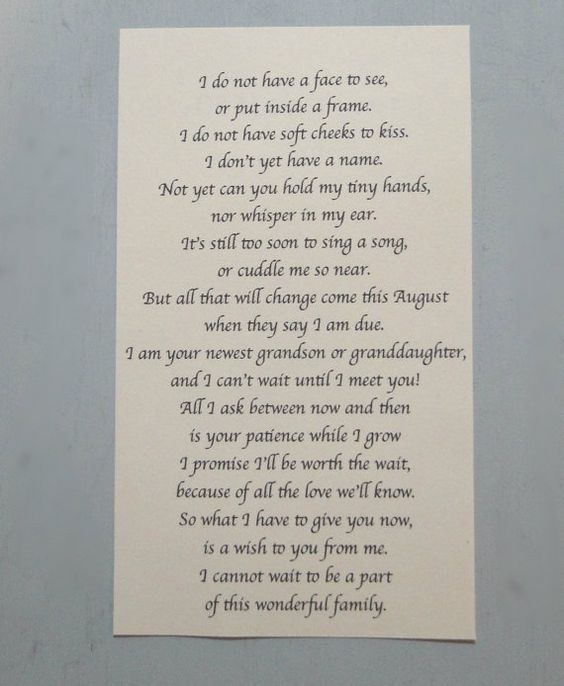 I do not have a face to see,
or put inside a frame.
I do not have soft cheeks to kiss.
I don't yet have a name.
Not yet can you hold my tiny hands,
nor whisper in my ear.
It's still too soon to sing a song,
or cuddle me so near.
But all that will change come this August
when they say I am due.
I am your newest grandson or granddaughter,
and I can't wait until I meet you!
All I ask between now and then
is your patience while I grow
I promise I'll be worth the wait,
because of all the love we'll know.
So what I have to give you now,
is a wish to you from me.
I cannot wait to be a part
of this wonderful family.